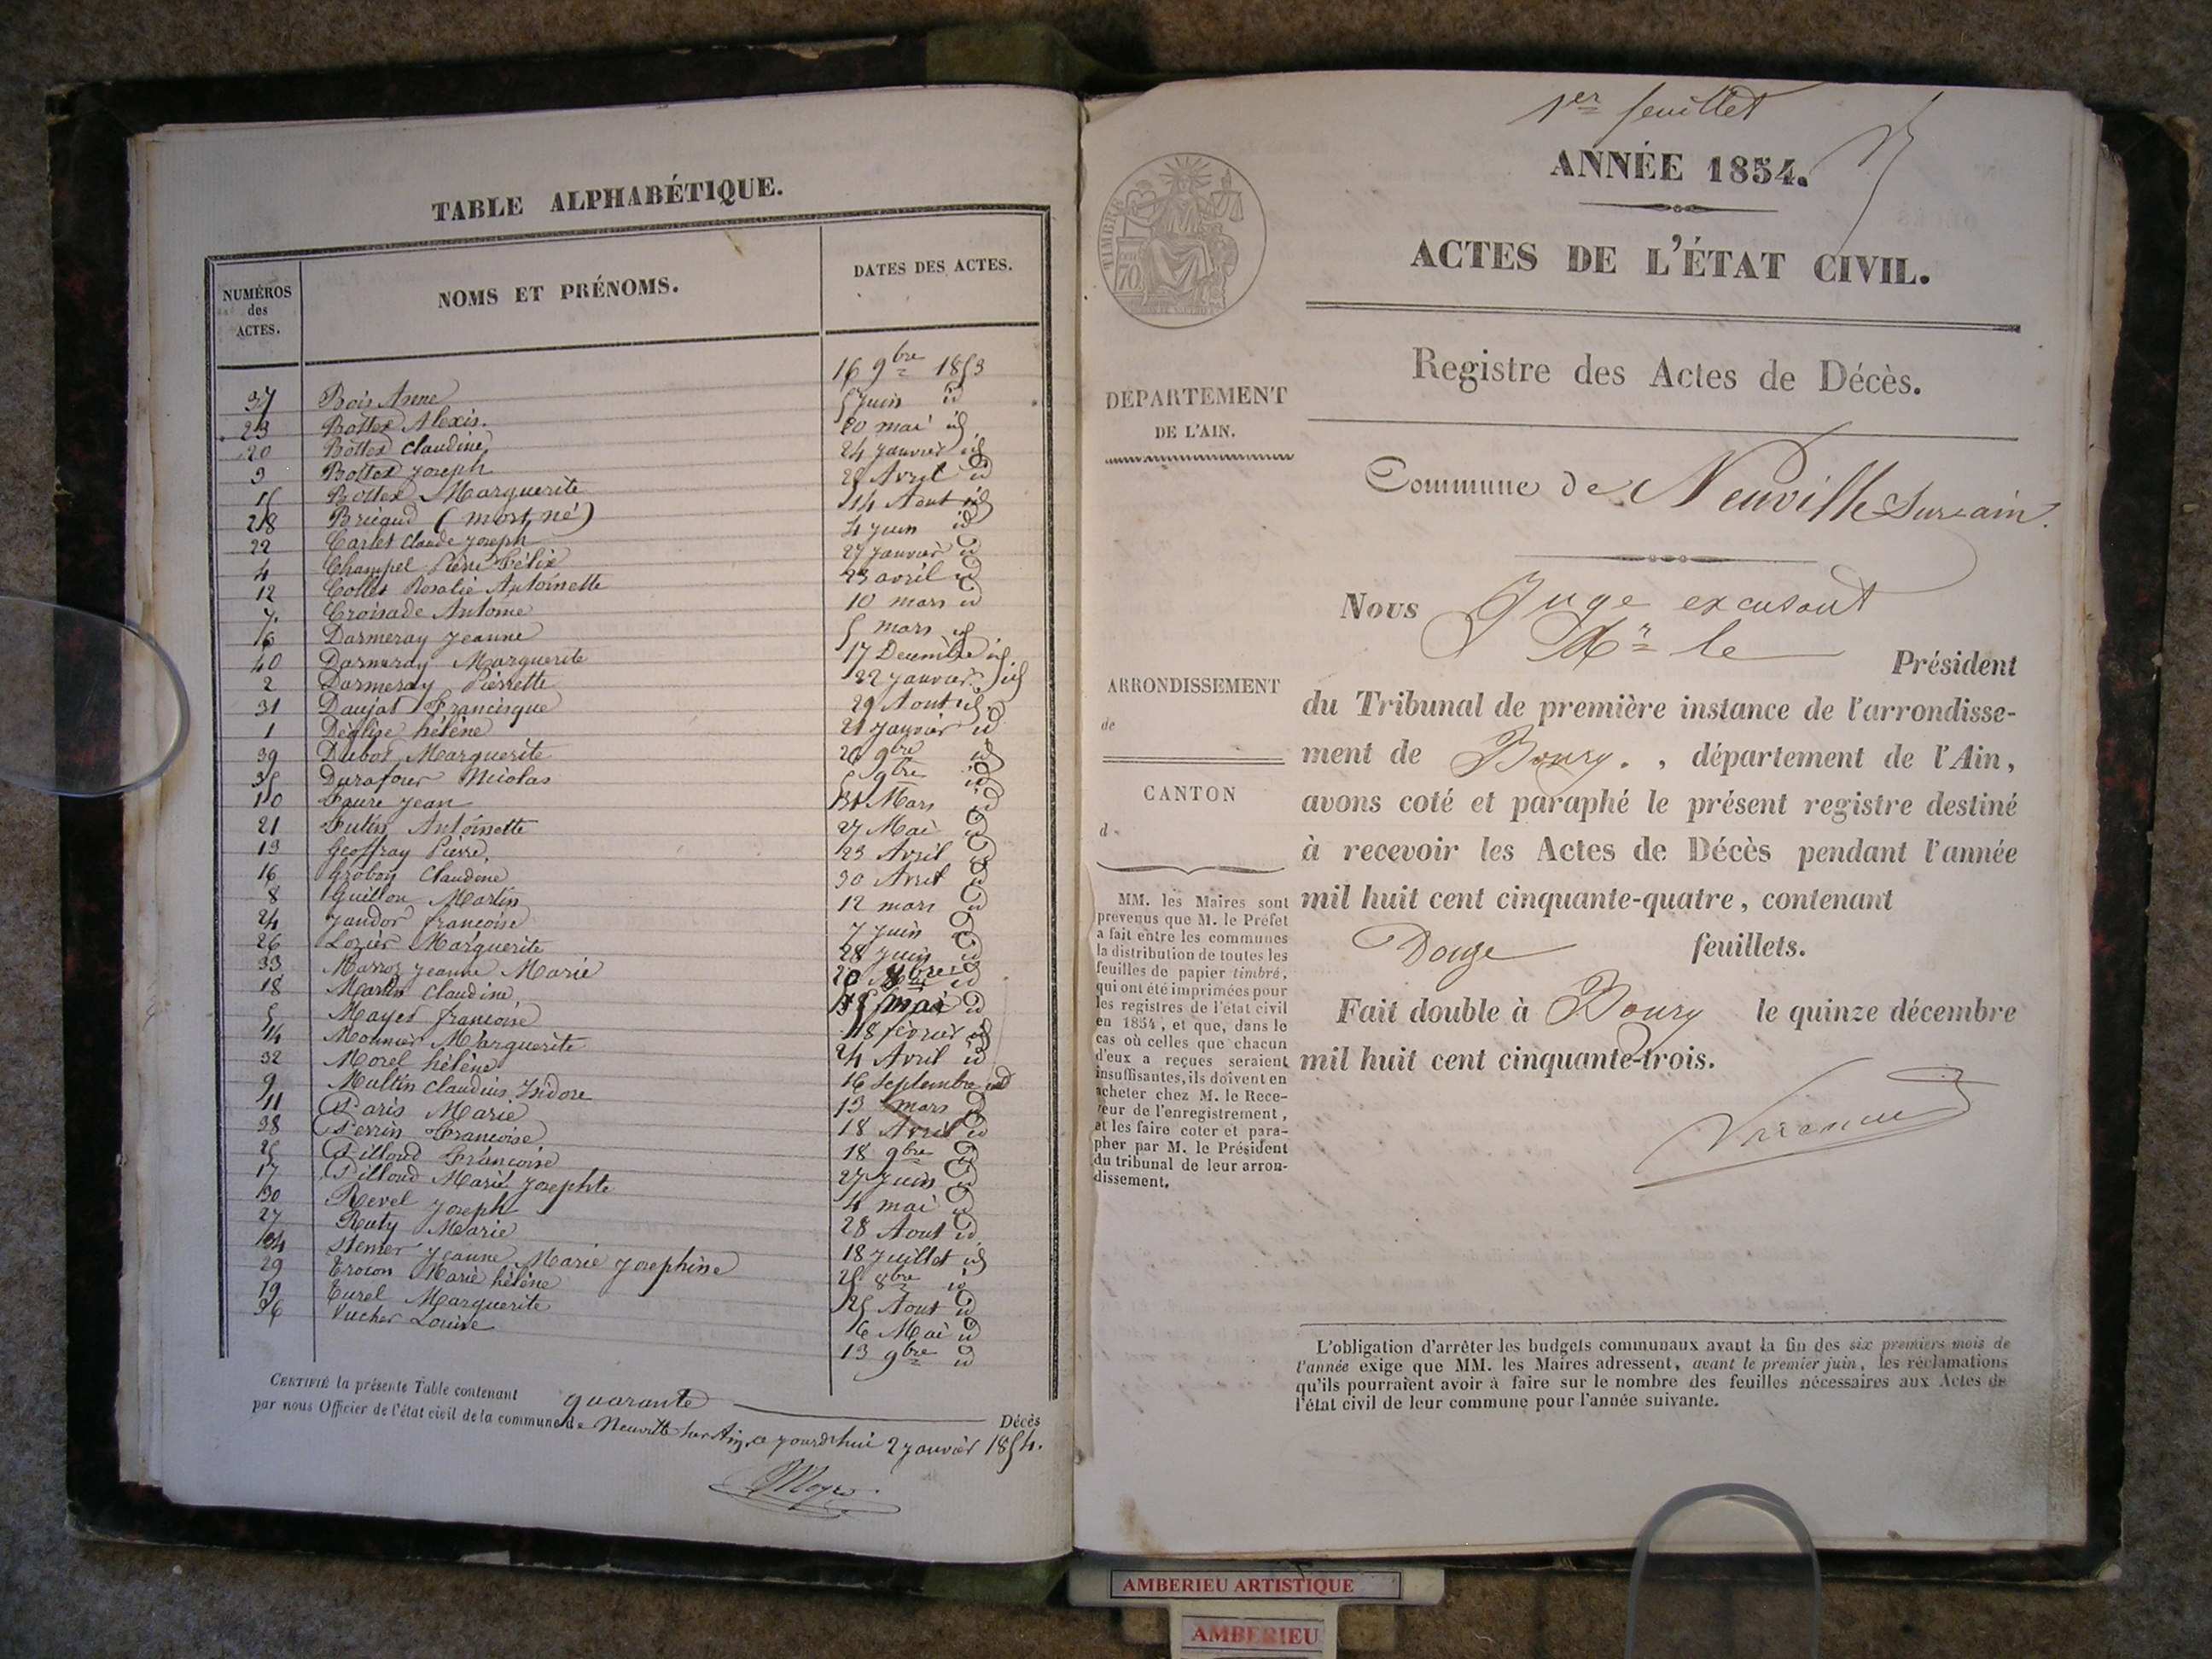 TABLE ALPHABÉTIQUE.
NUMÉROS des ACTES.
NOMS ET PRÉNOMS.
DATES DES ACTES.
37 Bois Anne 16 9bre 1853
23 Bottex Alexis. 5 Juin id
20 Bottex Claudine 20 mai id
3 Bottex Joseph 24 Janvier id
15 Bottex Marguerite 28 Avril id
28 Brigaud (mort né) 14 Aout id
22 Carlet Claude Joseph 4 Juin id
4 Champel Pierre Félix 27 Janvier id
12 Collet Rosalie Antoinette 23 avril id
7. Croisade Antoine 10 mars id
6 Darmeray Jeanne 5 mars id
40 Darmeray Marguerite 17 Decembre id
2 Darmeray Pierrette 22 Janvier id
31 Daujat Francisque 29 Aout id
1 Déglise hélène 21 Janvier id
39 Dubos Marguerite 20 9bre id
35 Durafour Nicolas 5 9bre id
10 Faure Jean 31 Mars id
21 Futin Antoinette 27 Mai id
13 Geoffray Pierre, 23 Avril id
16 Groboz Claudine 30 Avril id
8 Guillon Martin 12 mars id
24 Jandor françoise 7 Juin id
26 Lozier Marguerite 28 Juin id
33 Marroz Jeanne Marie 20 8bre id
18 Martin Claudine 15 mai id
5 Mayet françoise 18 fevrier id
14 Monnier Marguerite 24 Avril id
32 Morel hélène 16 Septembre id
9 Multin Claudius Isidore 13 mars id
11 Paris Marie 18 Avril id
38 Perrin Françoise 18 9bre id
25 Pilloud Françoise 27 Juin id
17 Pilloud Marie Josephte 4 mai id
30 Revel Joseph 28 Aout id
27 Ruty Marie 18 Juillet id
34 Stemer Jeanne Marie Josephine 25 8bre id
29 Trocon Marie hélène 25 Aout id
19 Turel Marguerite 16 Mai id
36 Vucher Louise 13 9bre id
CERTIFIÉ la présente Table contenant quarante Décès
par nous Officier de l'état civil de la commune de Neuville sur Ain, ce jourd'hui 2 janvier 1854.
1er feuillet
ANNÉE 1854.
ACTES DE L'ÉTAT CIVIL.
Registre des Actes de Décès.
Commune de Neuville sur ain.
TIMBRE
70
DÉPARTEMENT
DE L'AIN.
ARRONDISSEMENT
de
CANTON
d
MM. les Maires sont
prévenus que M. le Préfet
a fait entre les communes
la distribution de toutes les
feuilles de papier timbré,
qui ont été imprimées pour
les registres de l'état civil
en 1854, et que, dans le
cas où celles que chacun
d'eux a reçues seraient
insuffisantes, ils doivent en
acheter chez M. le Rece-
veur de l'enregistrement,
et les faire coter et para-
pher par M. le Président
du tribunal de leur arron-
dissement.
Nous Juge excusant
Mr le Président
du Tribunal de première instance de l'arrondisse-
ment de Bourg. , département de l'Ain,
avons coté et paraphé le présent registre destiné
à recevoir les Actes de Décès pendant l'année
mil huit cent cinquante-quatre, contenant
Douze feuillets.
Fait double à Bourg le quinze décembre
mil huit cent cinquante-trois.
L'obligation d'arrêter les budgets communaux avant la fin des six premiers mois de
l'année exige que MM. les Maires adressent, avant le premier juin, les réclamations
qu'ils pourraient avoir à faire sur le nombre des feuilles nécessaires aux Actes de
l'état civil de leur commune pour l'année suivante.
AMBERIEU ARTISTIQUE
AMBERIEU